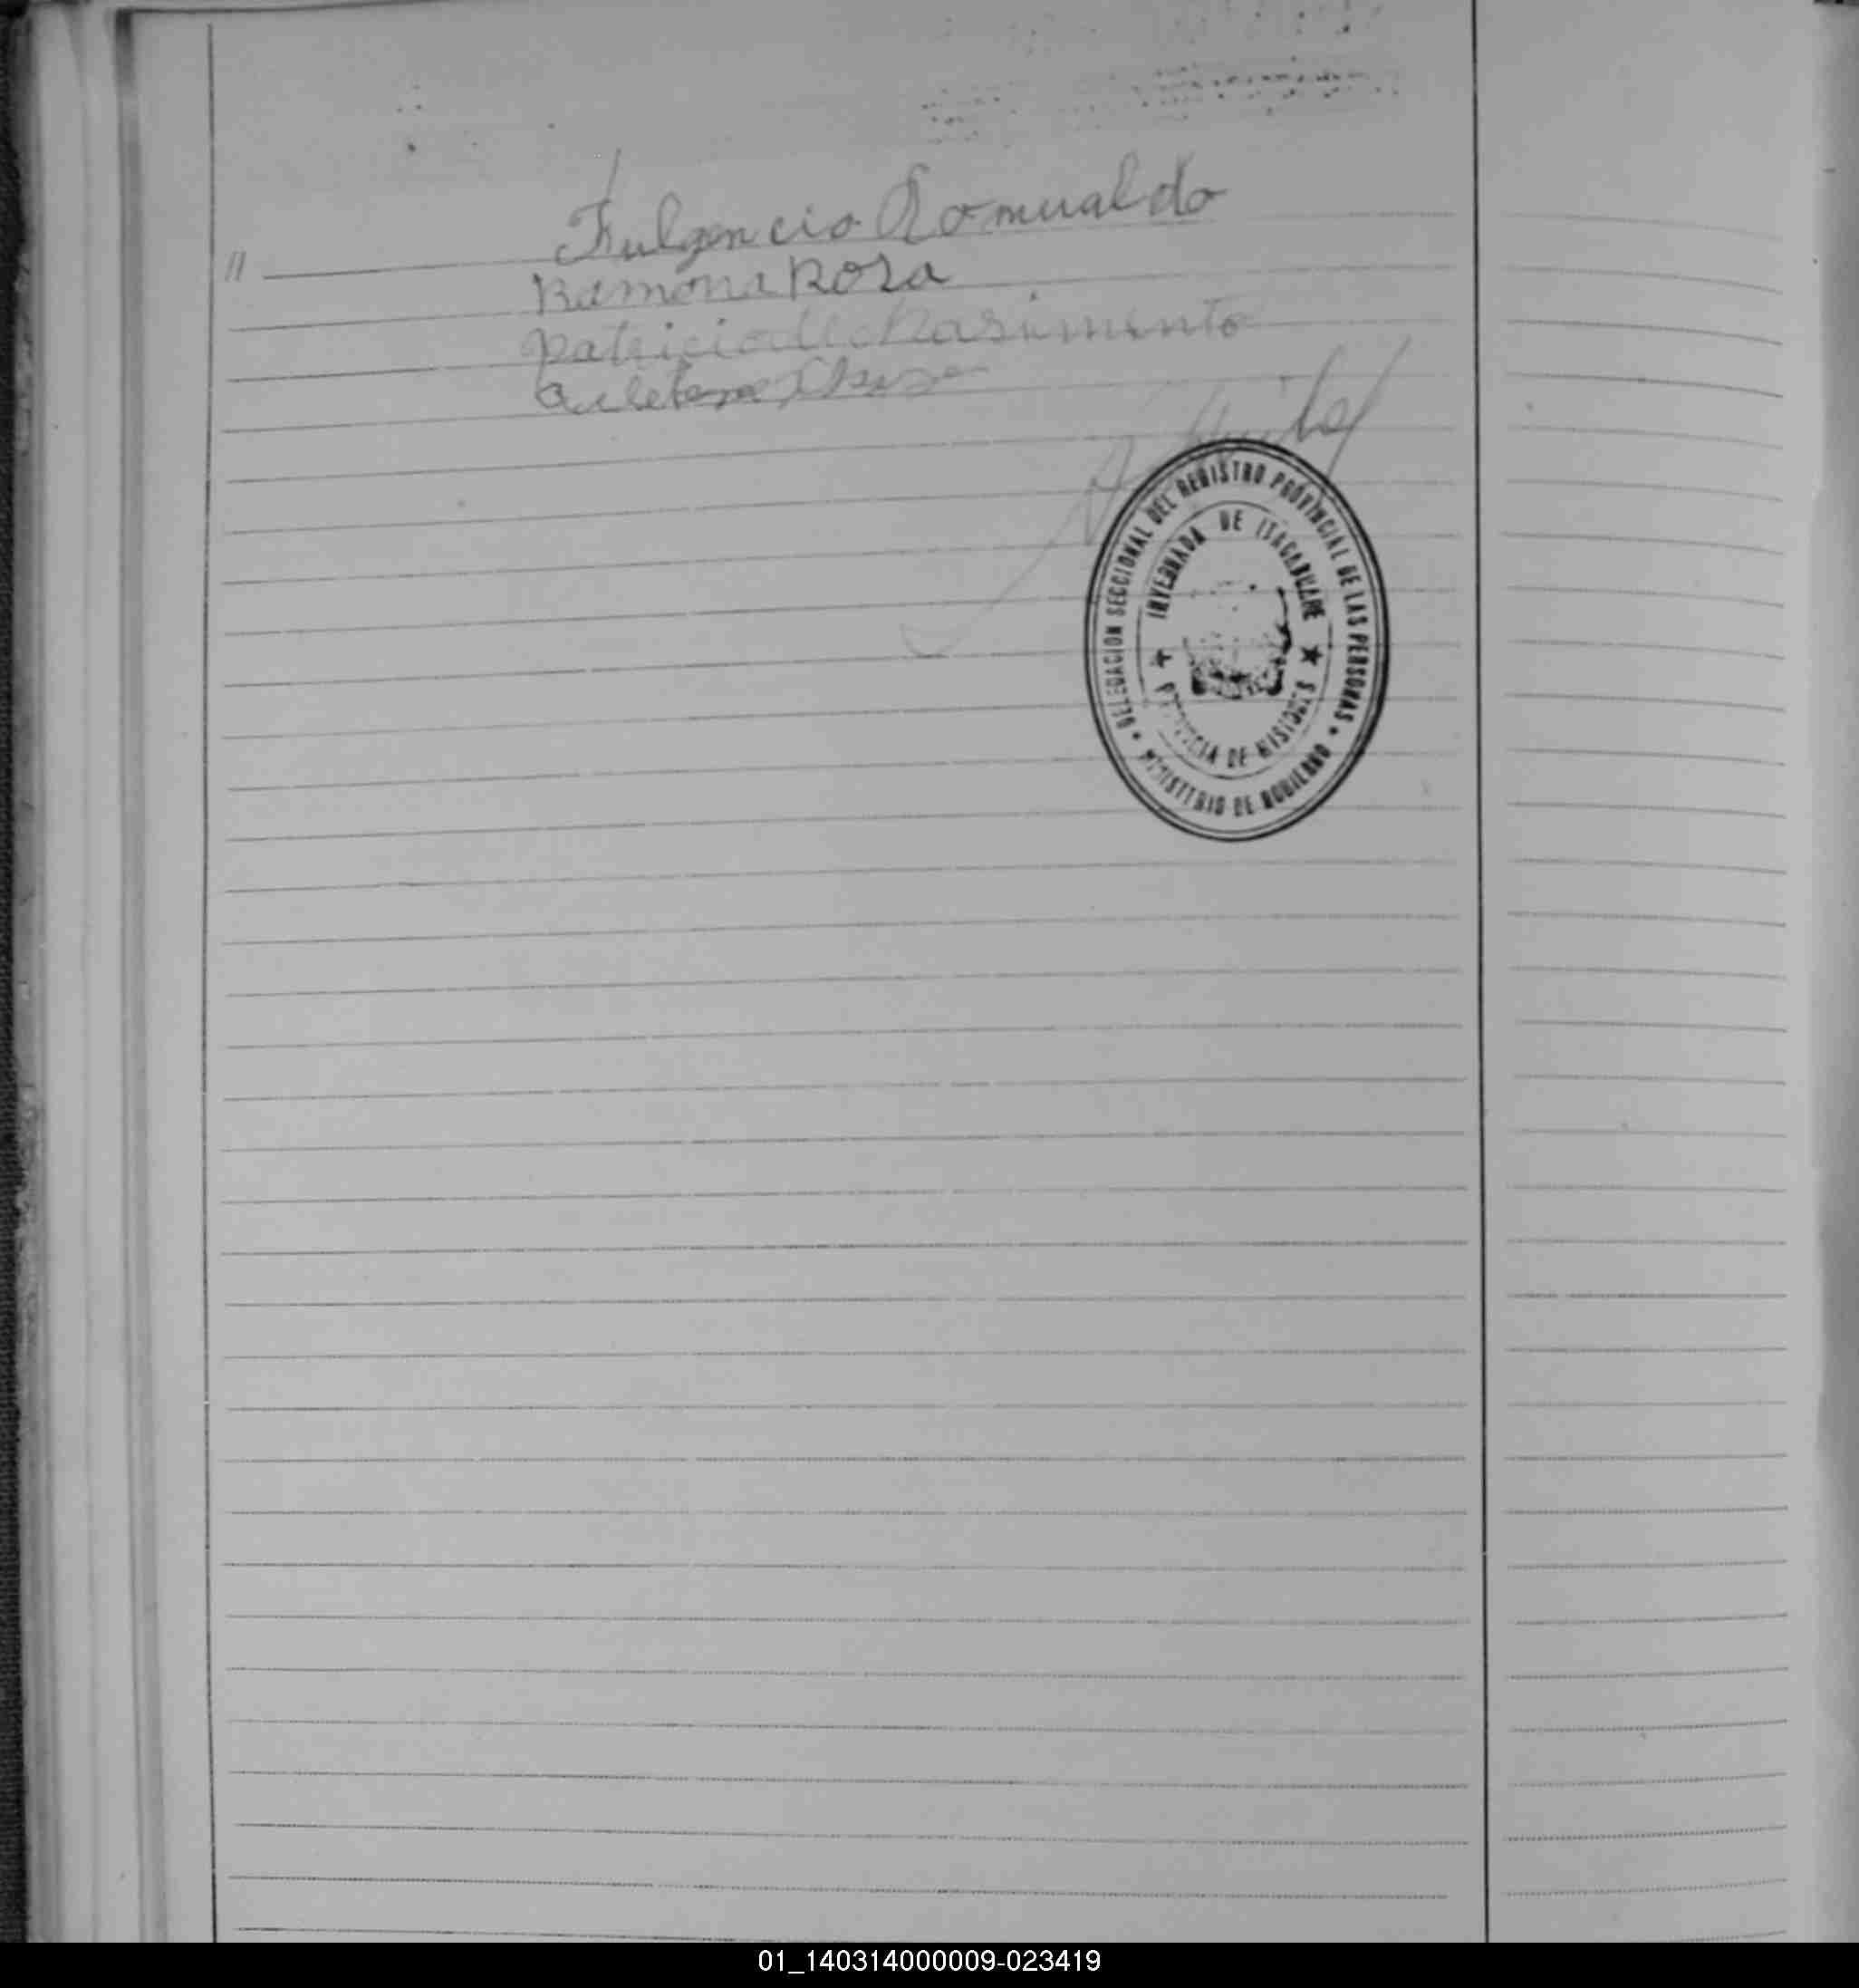 "
Fulgencio Romualdo
Ramona Rosa
Patricio de Nasimento
DELEGACION SECCIONAL DEL REGISTRO PROVINCIAL DE LAS PERSONAS
INVERNADA DE ITACARUARE
PROVINCIA DE MISIONES
MINISTERIO DE GOBIERNO
01_140314000009-023419